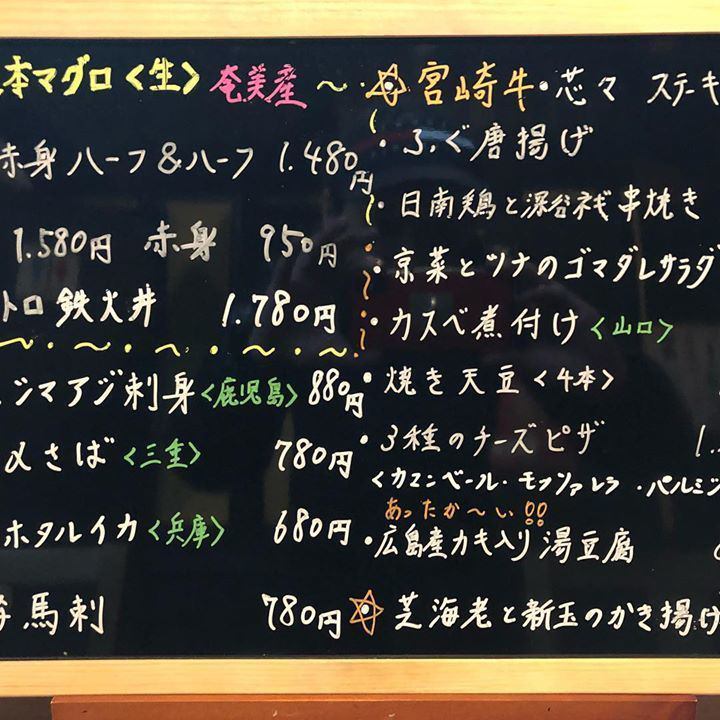 本マグロ〈生〉奄美産
赤身ハーフ&ハーフ 1.480円
1.580円 赤身 950円
トロ鉄火丼 1.780円
シマアジ刺身〈鹿児島〉880円
〆さば〈三重〉 780円
ホタルイカ〈兵庫〉 680円
馬刺 780円
宮崎牛・芯々 ステーキ
・ふぐ唐揚げ
・日南鶏と深谷ネギ串焼き
・京菜とツナのゴマダレサラダ
・カスベ煮付け〈山口〉
・焼き天豆〈4本〉
・3種のチーズピザ 1.
〈カマンベール・モッツァレラ・パルミジ
あったか〜い!!
・広島産カキ入り湯豆腐
芝海老と新玉のかき揚げ